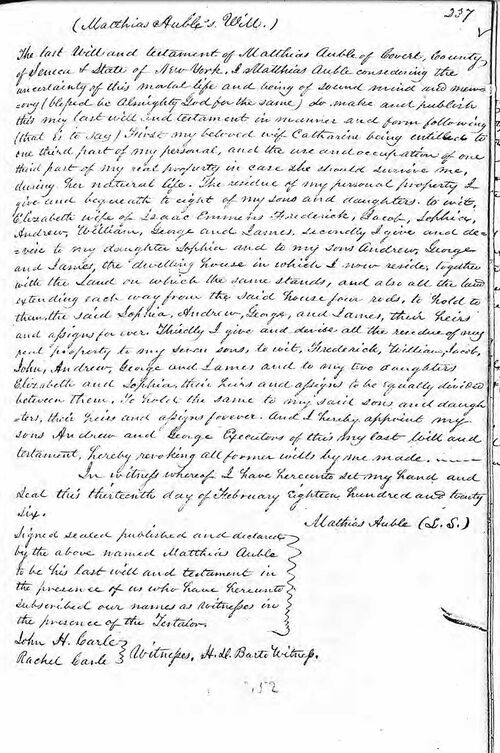 237
(Matthias Auble's Will.)
The last Will and testament of Matthias Auble of Covert, County
of Seneca & State of New York, I Matthias Auble considering the
uncertainty of this mortal life and being of sound mind and mem=
ory (blessed be Almighty God for the same) do make and publish
this my last will and testament in manner and form following
(that is to say) First my beloved wife Catharine being entitled to
one third part of my personal, and the use and occupation of one
third part of my real property in case she should survive me,
during her natural life. The residue of my personal property I
give and bequeath to eight of my sons and daughters. to wit,
Elizabeth wife of Isaac Emmens Frederick, Jacob, Sophia,
Andrew, William, George and James. secondly I give and de=
=vise to my daughter Sophia and to my sons Andrew, George
and James, the dwelling house in which I now reside, together
with the Land on which the same stands, and also all the land
extending each way from the said house four rods, to hold to
them, the said Sophia, Andrew, George, and James, their heirs
and assigns for ever. Thirdly I give and devise all the residue of my
real property to my seven sons, to wit, Frederick, William, Jacob,
John, Andrew, George and James and to my two daughters
Elizabeth and Sophia, their heirs and assigns to be equally divided
between them, To hold the same to my said sons and daugh
=ters, their heirs and assigns forever. And I hereby appoint my
sons Andrew and George Executors of this my last Will and
testament, hereby revoking all former wills by me made.
In witness whereof I have hereunto set my hand and
seal this thirteenth day of February Eighteen hundred and twenty
six.
Mathias Auble (L.S.)
Signed sealed published and declared
by the above named Matthias Auble
to be his last will and testament in
the presence of us who have hereunto
subscribed our names as witnesses in
the presence of the Testator.
John H. Carle
Rachel Carle } Witnesses. H. D. Barto Witness.
152